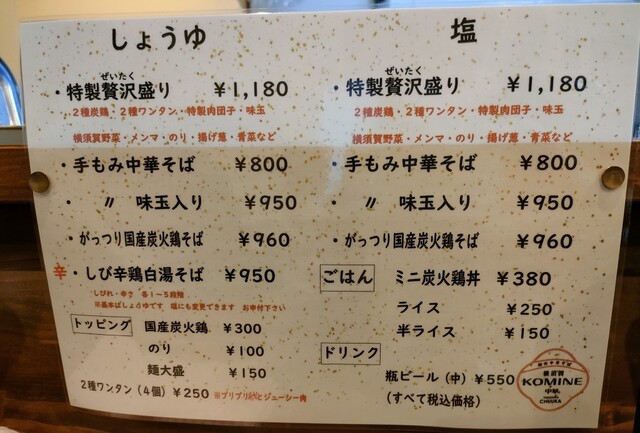 しょうゆ
ぜいたく
・特製贅沢盛り ¥1,180
2種炭鶏・2種ワンタン・特製肉団子・味玉
横須賀野菜・メンマ・のり・揚げ葱・青菜など
・手もみ中華そば ¥800
・〃 味玉入り ¥950
・がっつり国産炭火鶏そば ¥960
辛・しび辛鶏白湯そば ¥950
しびれ・辛さ 各1～5段階
※基本はしょうゆです 塩にも変更できます お申付下さい
トッピング 国産炭火鶏 ¥300
のり ¥100
麺大盛 ¥150
2種ワンタン(4個) ¥250 ※プリプリ
とジューシー肉
塩
ぜいたく
・特製贅沢盛り ¥1,180
2種炭鶏・2種ワンタン・特製肉団子・味玉
横須賀野菜・メンマ・のり・揚げ葱・青菜など
・手もみ中華そば ¥800
・〃 味玉入り ¥950
・がっつり国産炭火鶏そば ¥960
ごはん ミニ炭火鶏丼 ¥380
ライス ¥250
半ライス ¥150
ドリンク
瓶ビール(中) ¥550
(すべて税込価格)
横須賀
KOMINE
中華
CHUUKA